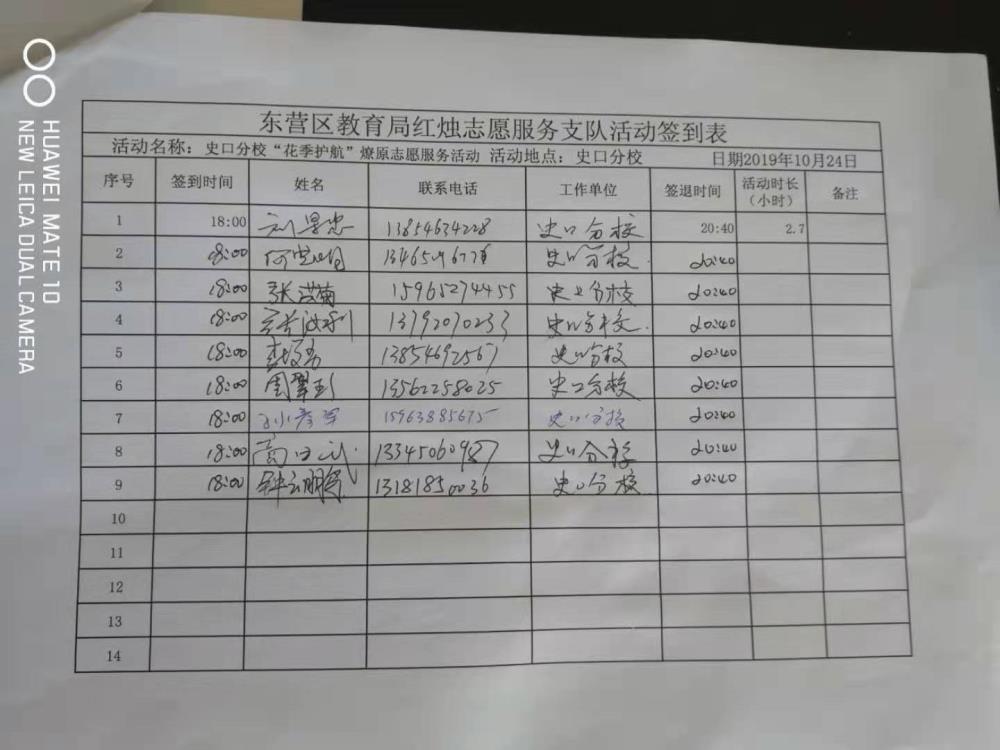 HUAWEI MATE 10
NEW LEICA DUAL CAMERA
东营区教育局红烛志愿服务支队活动签到表
活动名称：史口分校“花季护航”燎原志愿服务活动 活动地点：史口分校 日期2019年10月24日
序号 签到时间 姓名 联系电话 工作单位 签退时间 活动时长（小时） 备注
1 18:00 13854634228 史口分校 20:40 2.7
2 18:00 史口分校 20:40
3 18:00 15965274455 史口分校 20:40
4 18:00 13792070233 史口分校 20:40
5 18:00 13854692567 史口分校 20:40
6 18:00 13562258025 史口分校 20:40
7 18:00 15963885675 史口分校 20:40
8 18:00 史口分校 20:40
9 18:00 13181850036 史口分校 20:40
10
11
12
13
14